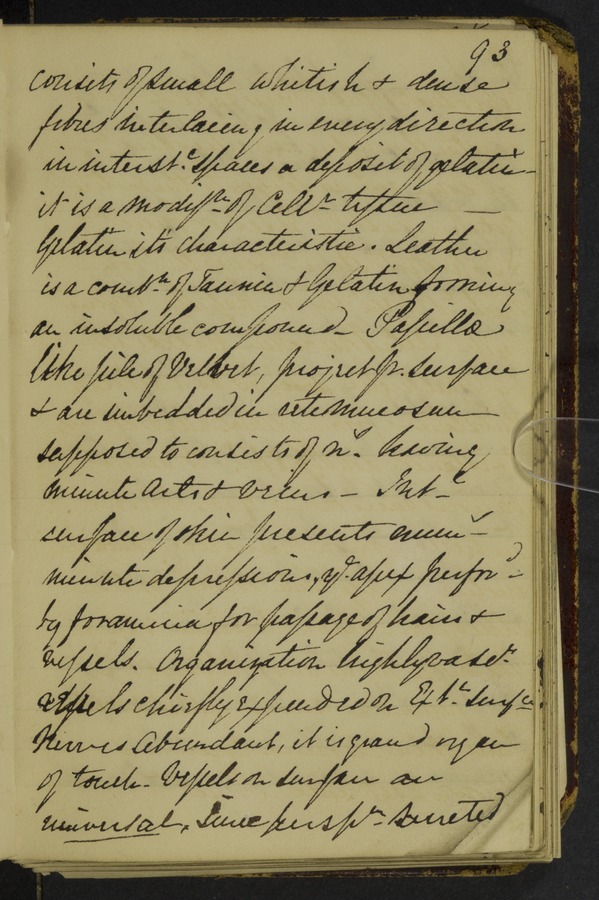 93
consists of small whitish & dense
fibres interlacing in every direction
in interst.c spaces a deposit of gelatin -
it is a modifn. of Cellr. tissue —
Gelatin its characteristic. Leather
is a combn. of Tannin & Gelatin forming
an insoluble compound - Papillæ
like pile of Velvet, project fr. surface
& are imbedded in rete mucosum
supposed to consists of ns. having
minute arts & veins - Intl.
surface of skin presents numr.
minute depressions, ye. apex perford.
by foramina for passage of hairs &
vessels. Organization highly vascr.
vessels chiefly expended on Extl. surfce
Nerves abundant, it is grand organ
of touch - Vessels on surface an
universal. Since perspn. secreted